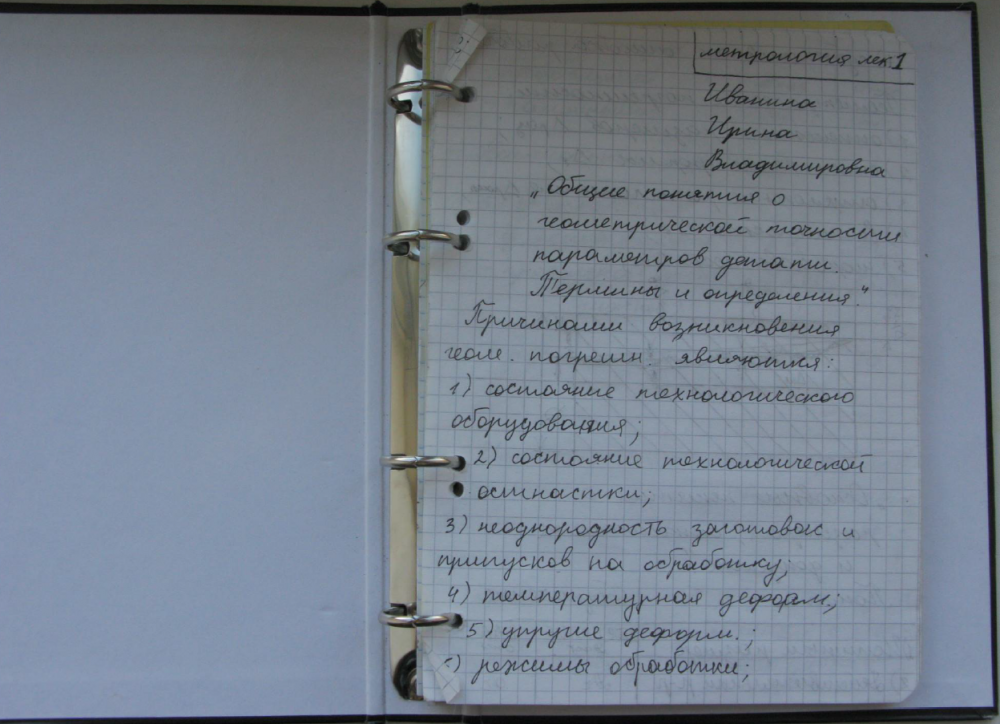 метрология лек 1
Иванина
Ирина
Владимировна
„Общие понятия о
геометрической точности
параметров детали.
Термины и определения."
Причинами возникновения
геом. погрешн. являются:
1) состояние технологического
оборудования;
2) состояние технологической
оснастки;
3) неоднородность заготовок и
припусков на обработку;
4) температурная деформ;
5) упругие деформ.;
6) режимы обработки;